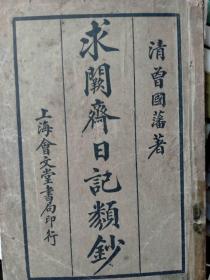 清曾國藩著
求闕齋日記類鈔
上海會文堂書局印行